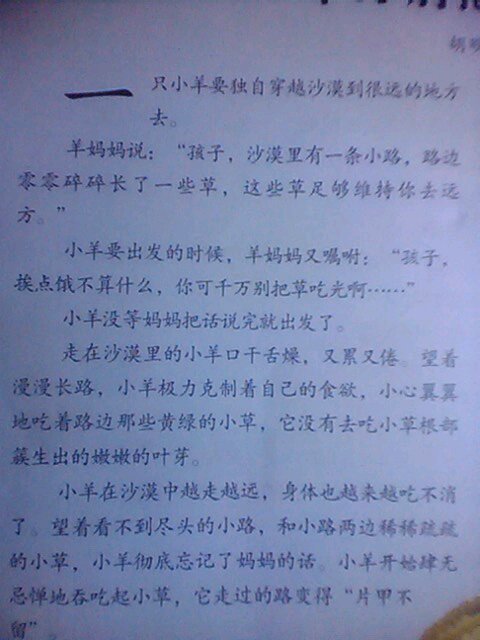 胡
一只小羊要独自穿越沙漠到很远的地方
去。
羊妈妈说：“孩子，沙漠里有一条小路，路边
零零碎碎长了一些草，这些草足够维持你去远
方。”
小羊要出发的时候，羊妈妈又嘱咐：“孩子，
挨点饿不算什么，你可千万别把草吃光啊……”
小羊没等妈妈把话说完就出发了。
走在沙漠里的小羊口干舌燥，又累又倦。望着
漫漫长路，小羊极力克制着自己的食欲，小心翼翼
地吃着路边那些黄绿的小草，它没有去吃小草根部
簇生出的嫩嫩的叶芽。
小羊在沙漠中越走越远，身体也越来越吃不消
了。望着看不到尽头的小路，和小路两边稀稀疏疏
的小草，小羊彻底忘记了妈妈的话。小羊开始肆无
忌惮地吞吃起小草，它走过的路变得“片甲不
留”。